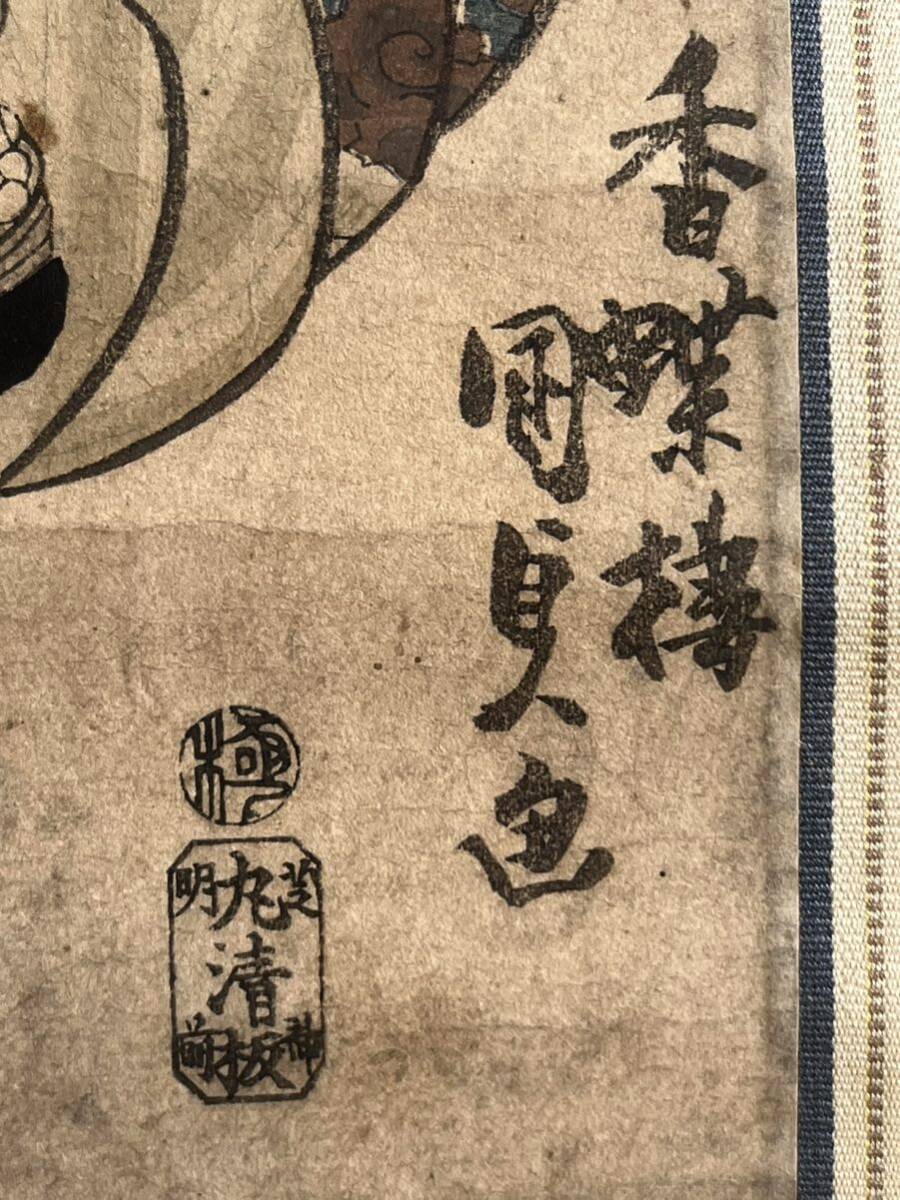 香蝶楼
国貞画
極
芝神
丸清板
明前